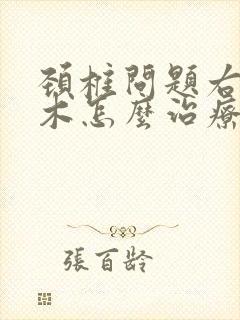 頸椎問題右
木怎麼治療
張百齡